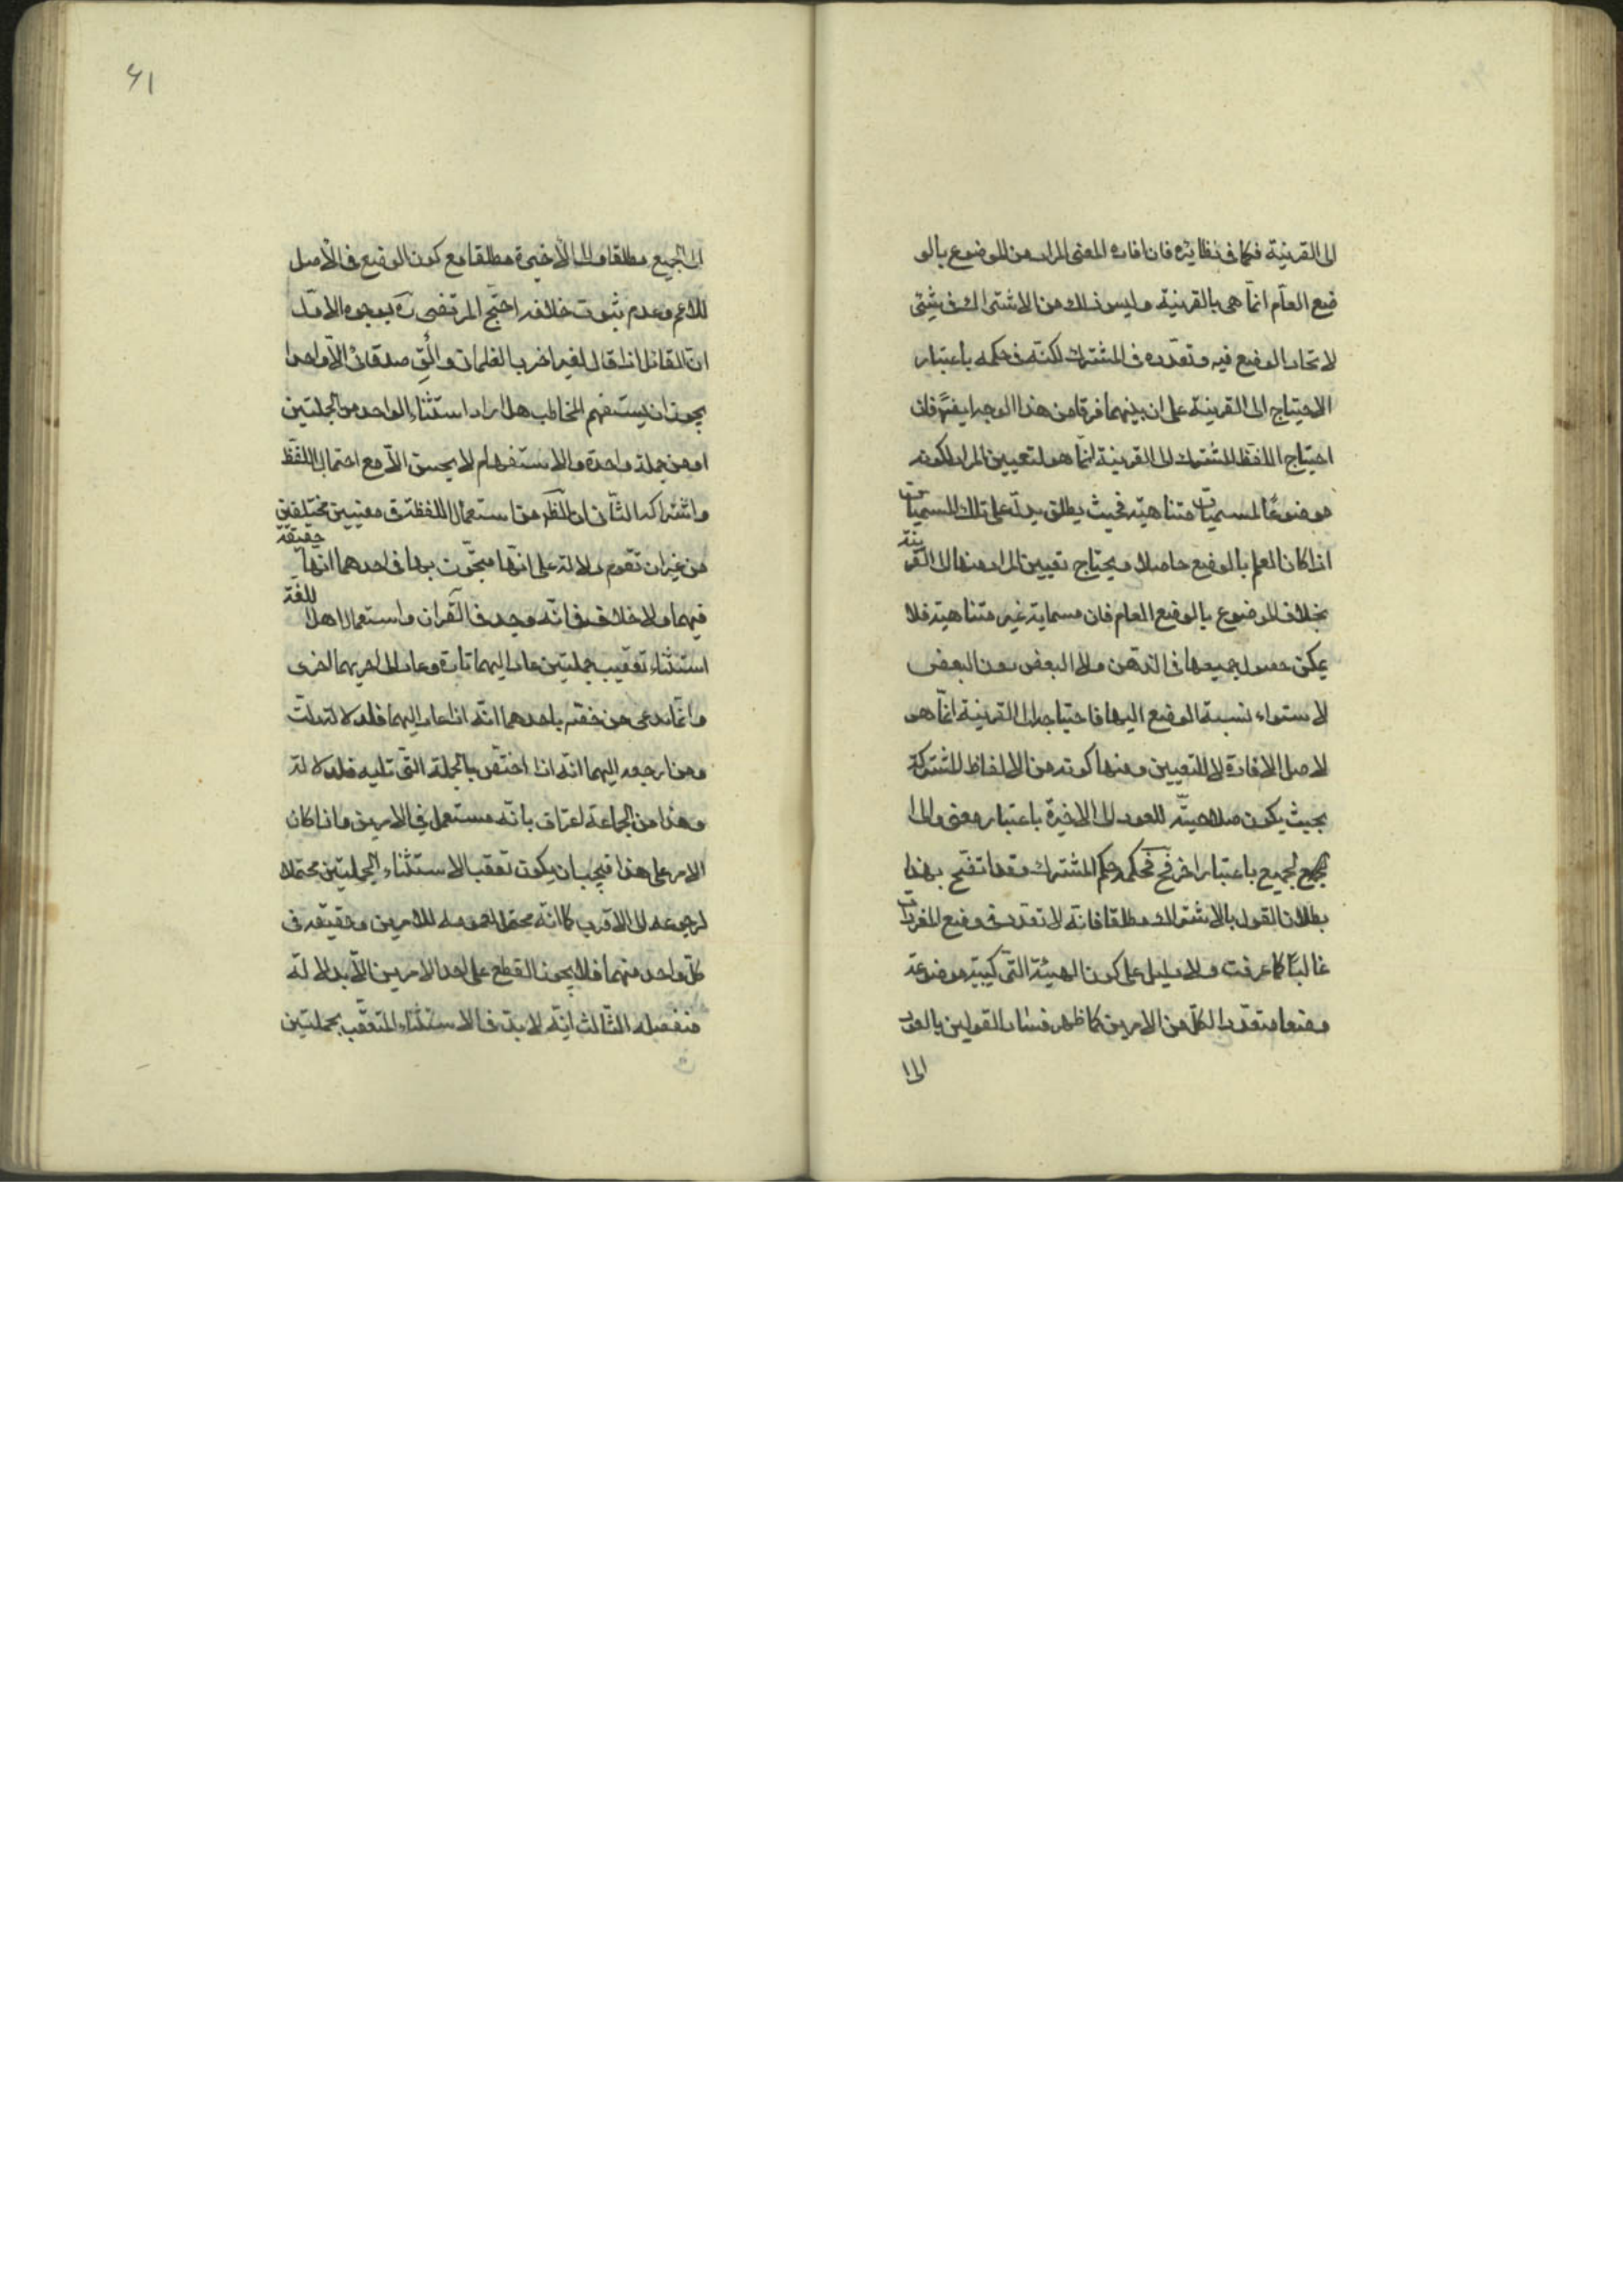 الى القرينة فكما فى نظائره فان افادة المعنى المراد من الموضوع بالو
ضع العام انما هى بالقرينة وليس ذلك من الاشتراك فى شيئى
لاتحاد الوضع فيه وتعدده فى المشترك لكنه فى حكمه باعتبار
الاحتياج الى القرينة على ان بينهما فرقا من هذا الوجه ايضا فان
احتياج اللفظ المشترك الى القرينة انما هو لتعيين المراد لكونه
موضوعا لمسميات متناهية فحيث يطلق يدل على تلك المسميات
اذا كان العلم بالوضع حاصلا ويحتاج تعيين المراد منها الى القرينة
بخلاف الموضوع بالوضع العام فان مسماية غير متناهية فلا
يمكن حصول جميعها فى الذهن ولا البعض دون البعض
لاستواء نسبة الوضع اليها فاحتياجه الى القرينة انما هو
لاصل الافادة لا للتعيين ومنها كونه من الالفاظ المشتركة
بحيث يكون صلاحيته للعود الى الاخيرة باعتبار معنى والى ا
لجميع باعتبار اخر فح فحكمه حكم المشترك وقد اتضح بهذا
بطلان القول بالاشتراك مطلقا فانه لا تعدد فى وضع المفردات
غالبا كما عرفت ولا دليل على كون الهيئة التركيبية موضوعة
وضعا متعددا لكل من الامرين كما ظهر فساد القولين بالعود
الى ا
٤١
لى الجميع مطلقا والى الاخيرة مطلقا مع كون الوضع فى الاصل
للاعم وعدم ثبوت خلافه احتج المرتضى ره بوجوه الاول
ان القائل اذا قال لغيره اضرب الغلمان والق صدقائى الا واحدا
يجوز ان يستفهم المخاطب هل اراد استثناء الواحد من الجملتين
او من جملة واحدة والاستفهام لا يحسن الا مع احتمال اللفظ
واشتراكه الثانى ان الظ من استعمال اللفظة فى معنيين مختلفين
من غير ان تقوم دلالة على انها متجوز بها فى احدهما انها حقيقة
فيهما ولا خلاف فى انه وجد فى القران واستعمال اهل اللغة
استثناء تعقب جملتين عاد اليهما تارة وعاد الى احديهما اخرى
وانما يدعى من خصه باحدهما انه اذا عاد اليهما فلدلالة دلت
ومن ارجعه اليهما انه اذا اختص بالجملة التى تليه فلدلالة
وهذا من الجماعة اعتراف بانه مستعمل فى الامرين واذا كان
الامر على هذا فيجب ان يكون تعقب الاستثناء الجملتين محتملا
لرجوعه الى الاقرب كما انه محتمل لعمومه للامرين وحقيقة فى
كل واحد منهما فلا يجوز القطع على احد الامرين الا بدلالة
منفصله الثالث انه لا بد فى الاستثناء المتعقب بجملتين